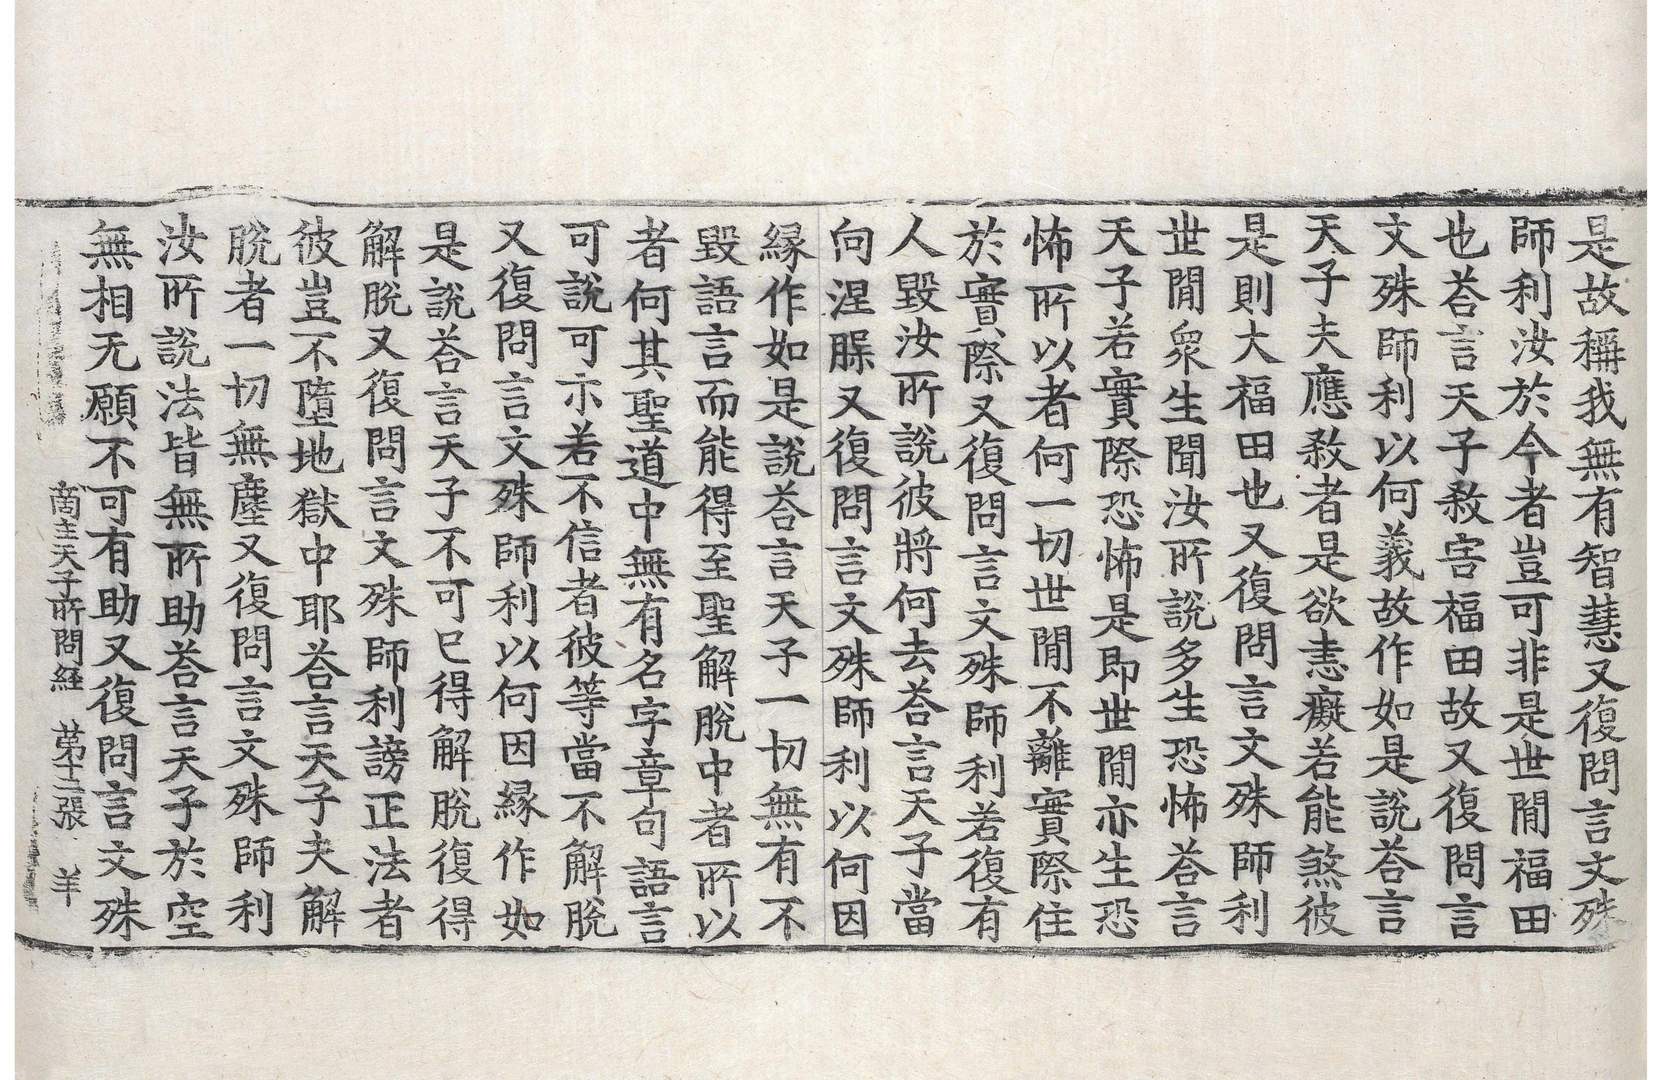 是故稱我無有智慧又復問言文殊
師利汝於今者豈可非是世閒福田
也荅言天子敎害福田故又復問言
文殊師利以何義故作如是說荅言
天子夫應敎者是欲恚癡若能煞彼
是則大福田也又復問言文殊師利
世閒衆生聞汝所說多生恐怖荅言
天子若實際恐怖是即世閒亦生恐
怖所以者何一切世閒不離實際住
於實際又復問言文殊師利若復有
人毀汝所說彼將何去荅言天子當
向涅槃又復問言文殊師利以何因
縁作如是說荅言天子一切無有不
毀語言而能得至聖解脫中者所以
者何其聖道中無有名字章句語言
可說可示若不信者彼等當不解脫
又復問言文殊師利以何因縁作如
是說荅言天子不可已得解脫復得
解脫又復問言文殊師利謗正法者
彼豈不墮地獄中耶荅言天子夫解
脫者一切無塵又復問言文殊師利
汝所說法皆無所助荅言天子於空
無相无願不可有助又復問言文殊
商主天子所問経　苐十二張　羊